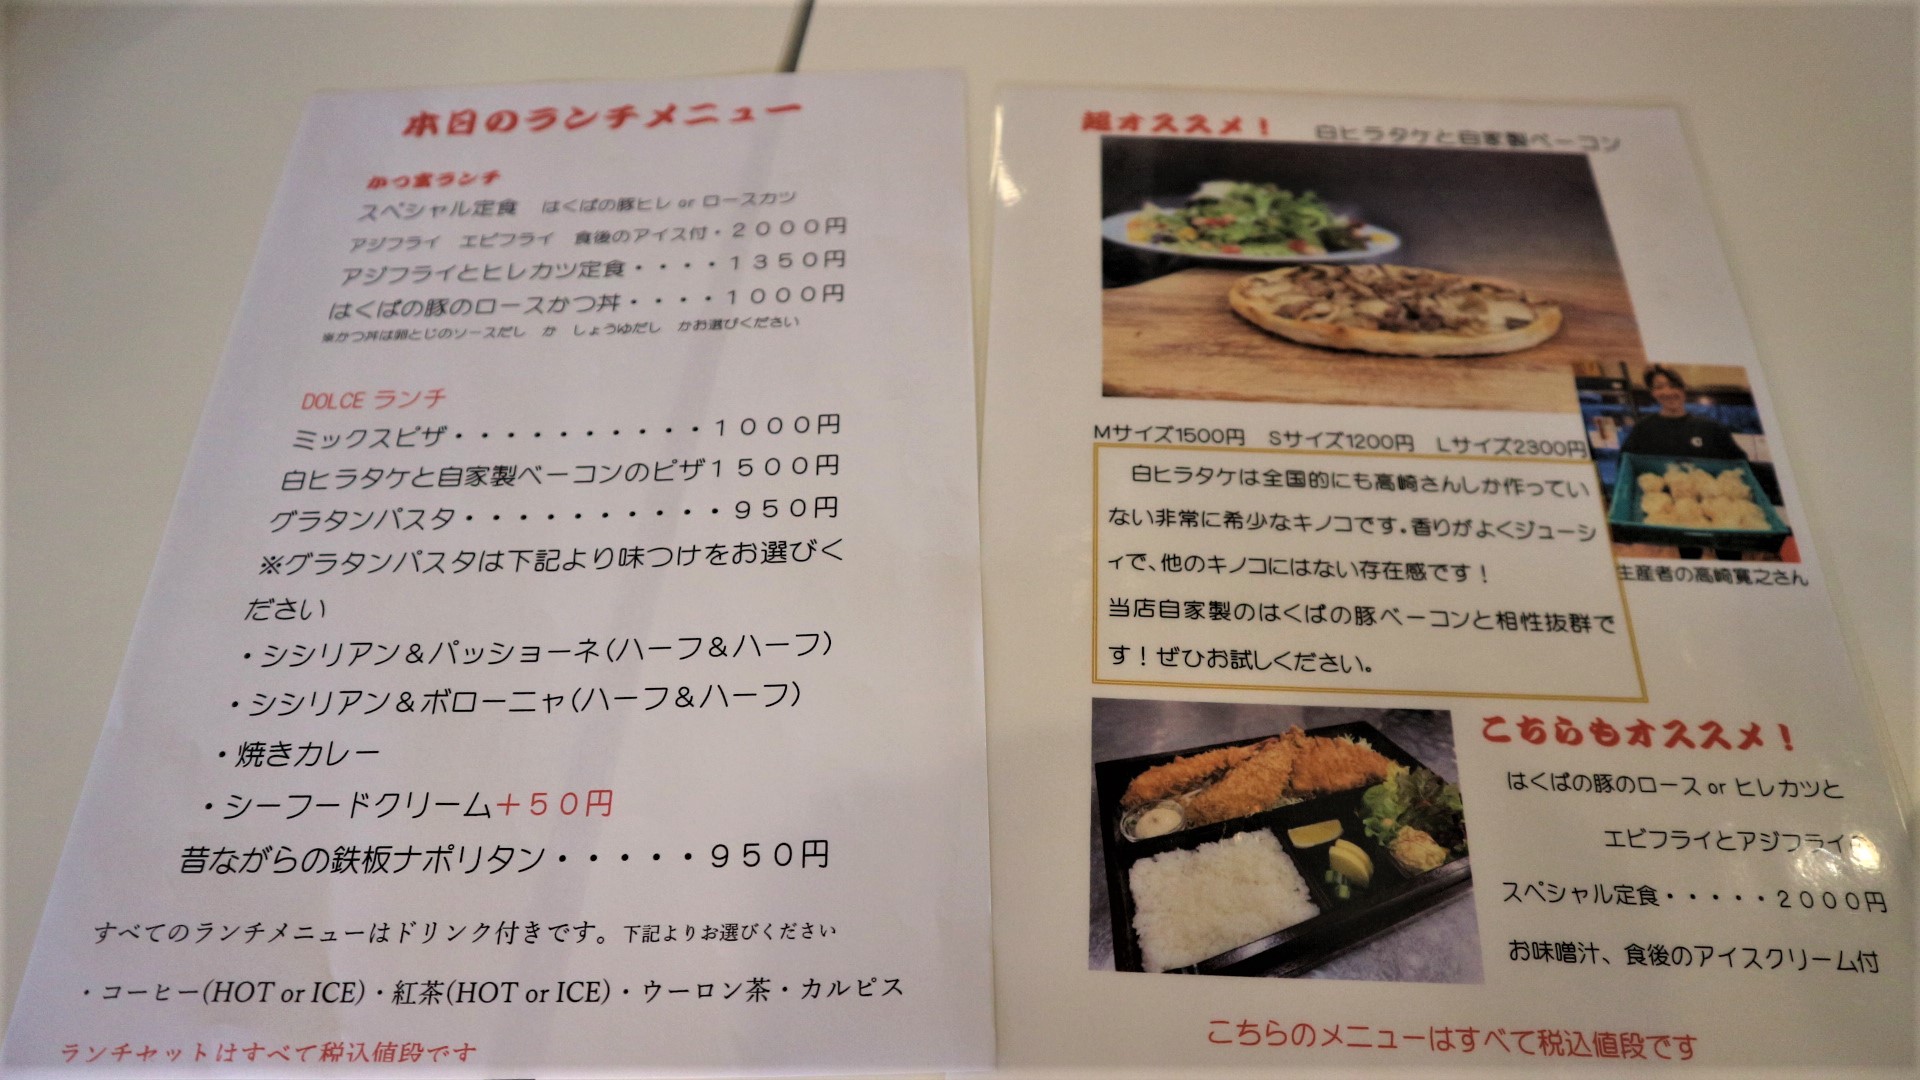 本日のランチメニュー
かつ玄ランチ
スペシャル定食　はくばの豚ヒレ or ロースカツ
アジフライ　エビフライ　食後のアイス付・２０００円
アジフライとヒレカツ定食・・・・１３５０円
はくばの豚のロースかつ丼・・・・１０００円
※かつ丼は卵とじのソースだし　か　しょうゆだし　かお選びください
DOLCE ランチ
ミックスピザ・・・・・・・・・・１０００円
白ヒラタケと自家製ベーコンのピザ１５００円
グラタンパスタ・・・・・・・・・・９５０円
※グラタンパスタは下記より味つけをお選びく
ださい
・シシリアン＆パッショーネ(ハーフ＆ハーフ)
・シシリアン＆ボローニャ(ハーフ＆ハーフ)
・焼きカレー
・シーフードクリーム＋５０円
昔ながらの鉄板ナポリタン・・・・・９５０円
すべてのランチメニューはドリンク付きです。下記よりお選びください
・コーヒー(HOT or ICE)・紅茶(HOT or ICE)・ウーロン茶・カルピス
ランチセットはすべて税込値段です
超オススメ！　白ヒラタケと自家製ベーコン
Mサイズ1500円　Sサイズ1200円　Lサイズ2300円
白ヒラタケは全国的にも高崎さんしか作ってい
ない非常に希少なキノコです。香りがよくジューシ
ィで、他のキノコにはない存在感です！
当店自家製のはくばの豚ベーコンと相性抜群で
す！ぜひお試しください。
生産者の高崎寛之さん
こちらもオススメ！
はくばの豚のロース or ヒレカツと
エビフライとアジフライ
スペシャル定食・・・・・２０００円
お味噌汁、食後のアイスクリーム付
こちらのメニューはすべて税込値段です